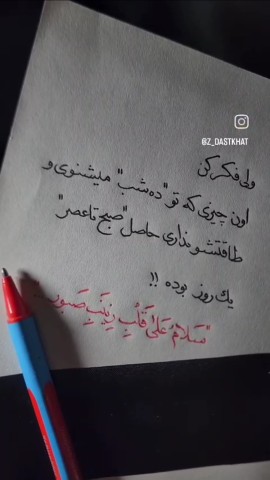 @Z_DASTKHAT
ولی فکر کن
اون چیزی که تو "ده شب" میشنوی و
طاقتشو نداری حاصل "صبح تا عصر"
یک روز بوده !!
"سَلامٌ عَلیٰ قَلبِ زِینَبِ صَبور